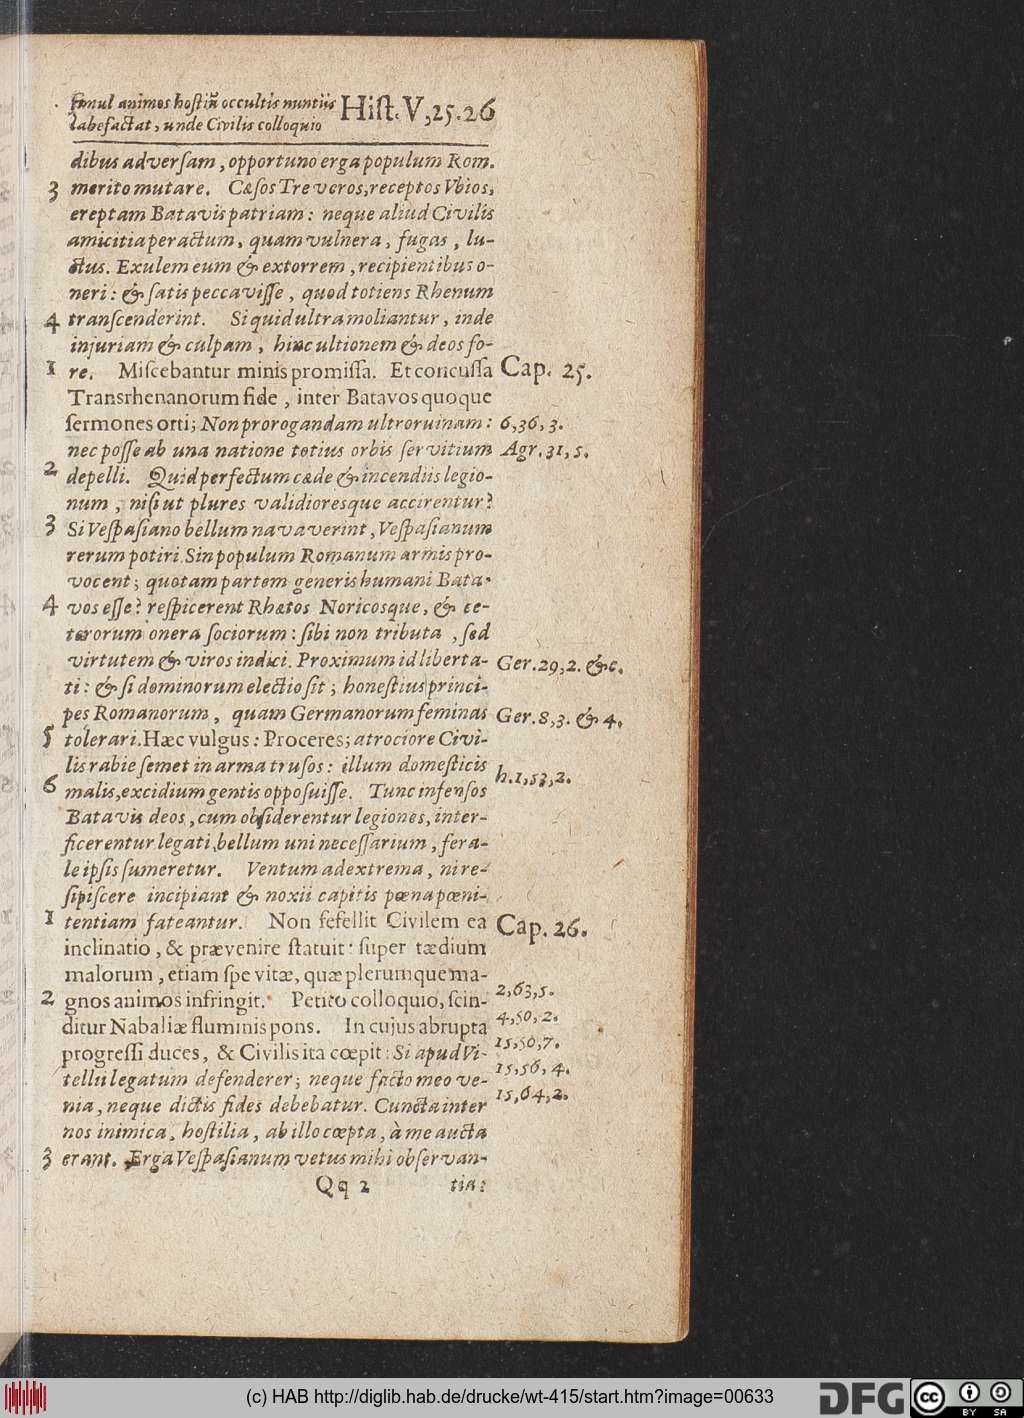 simul animos hostiũ occultis nuntiis
labefactat, unde Civilis colloquio
Hist. V, 25. 26
dibus adversam, opportuno erga populum Rom.
3 merito mutare. Cæsos Treveros, receptos Vbios,
ereptam Batavis patriam: neque aliud Civilis
amicitia peractum, quam vulnera, fugas, lu-
ctus. Exulem eum & extorrem, recipientibus o-
neri: & satis peccavisse, quod totiens Rhenum
4 transcenderint. Si quid ultra moliantur, inde
injuriam & culpam, hinc ultionem & deos fo-
1 re. Miscebantur minis promissa. Et concussa Cap. 25.
Transrhenanorum fide, inter Batavos quoque
sermones orti; Non prorogandam ultro ruinam: 6,36,3.
nec posse ab una natione totius orbis servitium Agr. 31, 5.
2 depelli. Quid perfectum cæde & incendiis legio-
num, nisi ut plures validioresque accirentur?
3 Si Vespasiano bellum navaverint, Vespasianum
rerum potiri. Sin populum Romanum armis pro-
vocent; quotam partem generis humani Bata-
4 vos esse? respicerent Rhætos Noricosque, & ce-
terorum onera sociorum: sibi non tributa, sed
virtutem & viros indici. Proximum id liberta- Ger. 29,2. &c.
ti: & si dominorum electio sit; honestius princi-
pes Romanorum, quam Germanorum feminas Ger. 8,3. & 4.
5 tolerari. Hæc vulgus: Proceres; atrociore Civi-
lis rabie semet in arma trusos: illum domesticis h. 1,53,2.
6 malis, excidium gentis opposuisse. Tunc infensos
Batavis deos, cum obsiderentur legiones, inter-
ficerentur legati, bellum uni necessarium, fera-
le ipsis sumeretur. Ventum ad extrema, ni re-
sipiscere incipiant & noxii capitis pœna pœni-
1 tentiam fateantur. Non fefellit Civilem ea Cap. 26.
inclinatio, & prævenire statuit: super tædium
malorum, etiam spe vitæ, quæ plerumque ma-
2 gnos animos infringit. Petito colloquio, scin- 2,63,5.
ditur Nabaliæ fluminis pons. In cujus abrupta 4,50,2.
progressi duces, & Civilis ita cœpit: Si apud Vi- 15,50,7.
tellii legatum defenderer; neque facto meo ve- 15,56,4.
nia, neque dictis fides debebatur. Cuncta inter 15,64,2.
nos inimica, hostilia, ab illo cœpta, à me aucta
3 erant. Erga Vespasianum vetus mihi observan-
Qq 2 tia:
(c) HAB http://diglib.hab.de/drucke/wt-415/start.htm?image=00633
DFG
cc BY SA